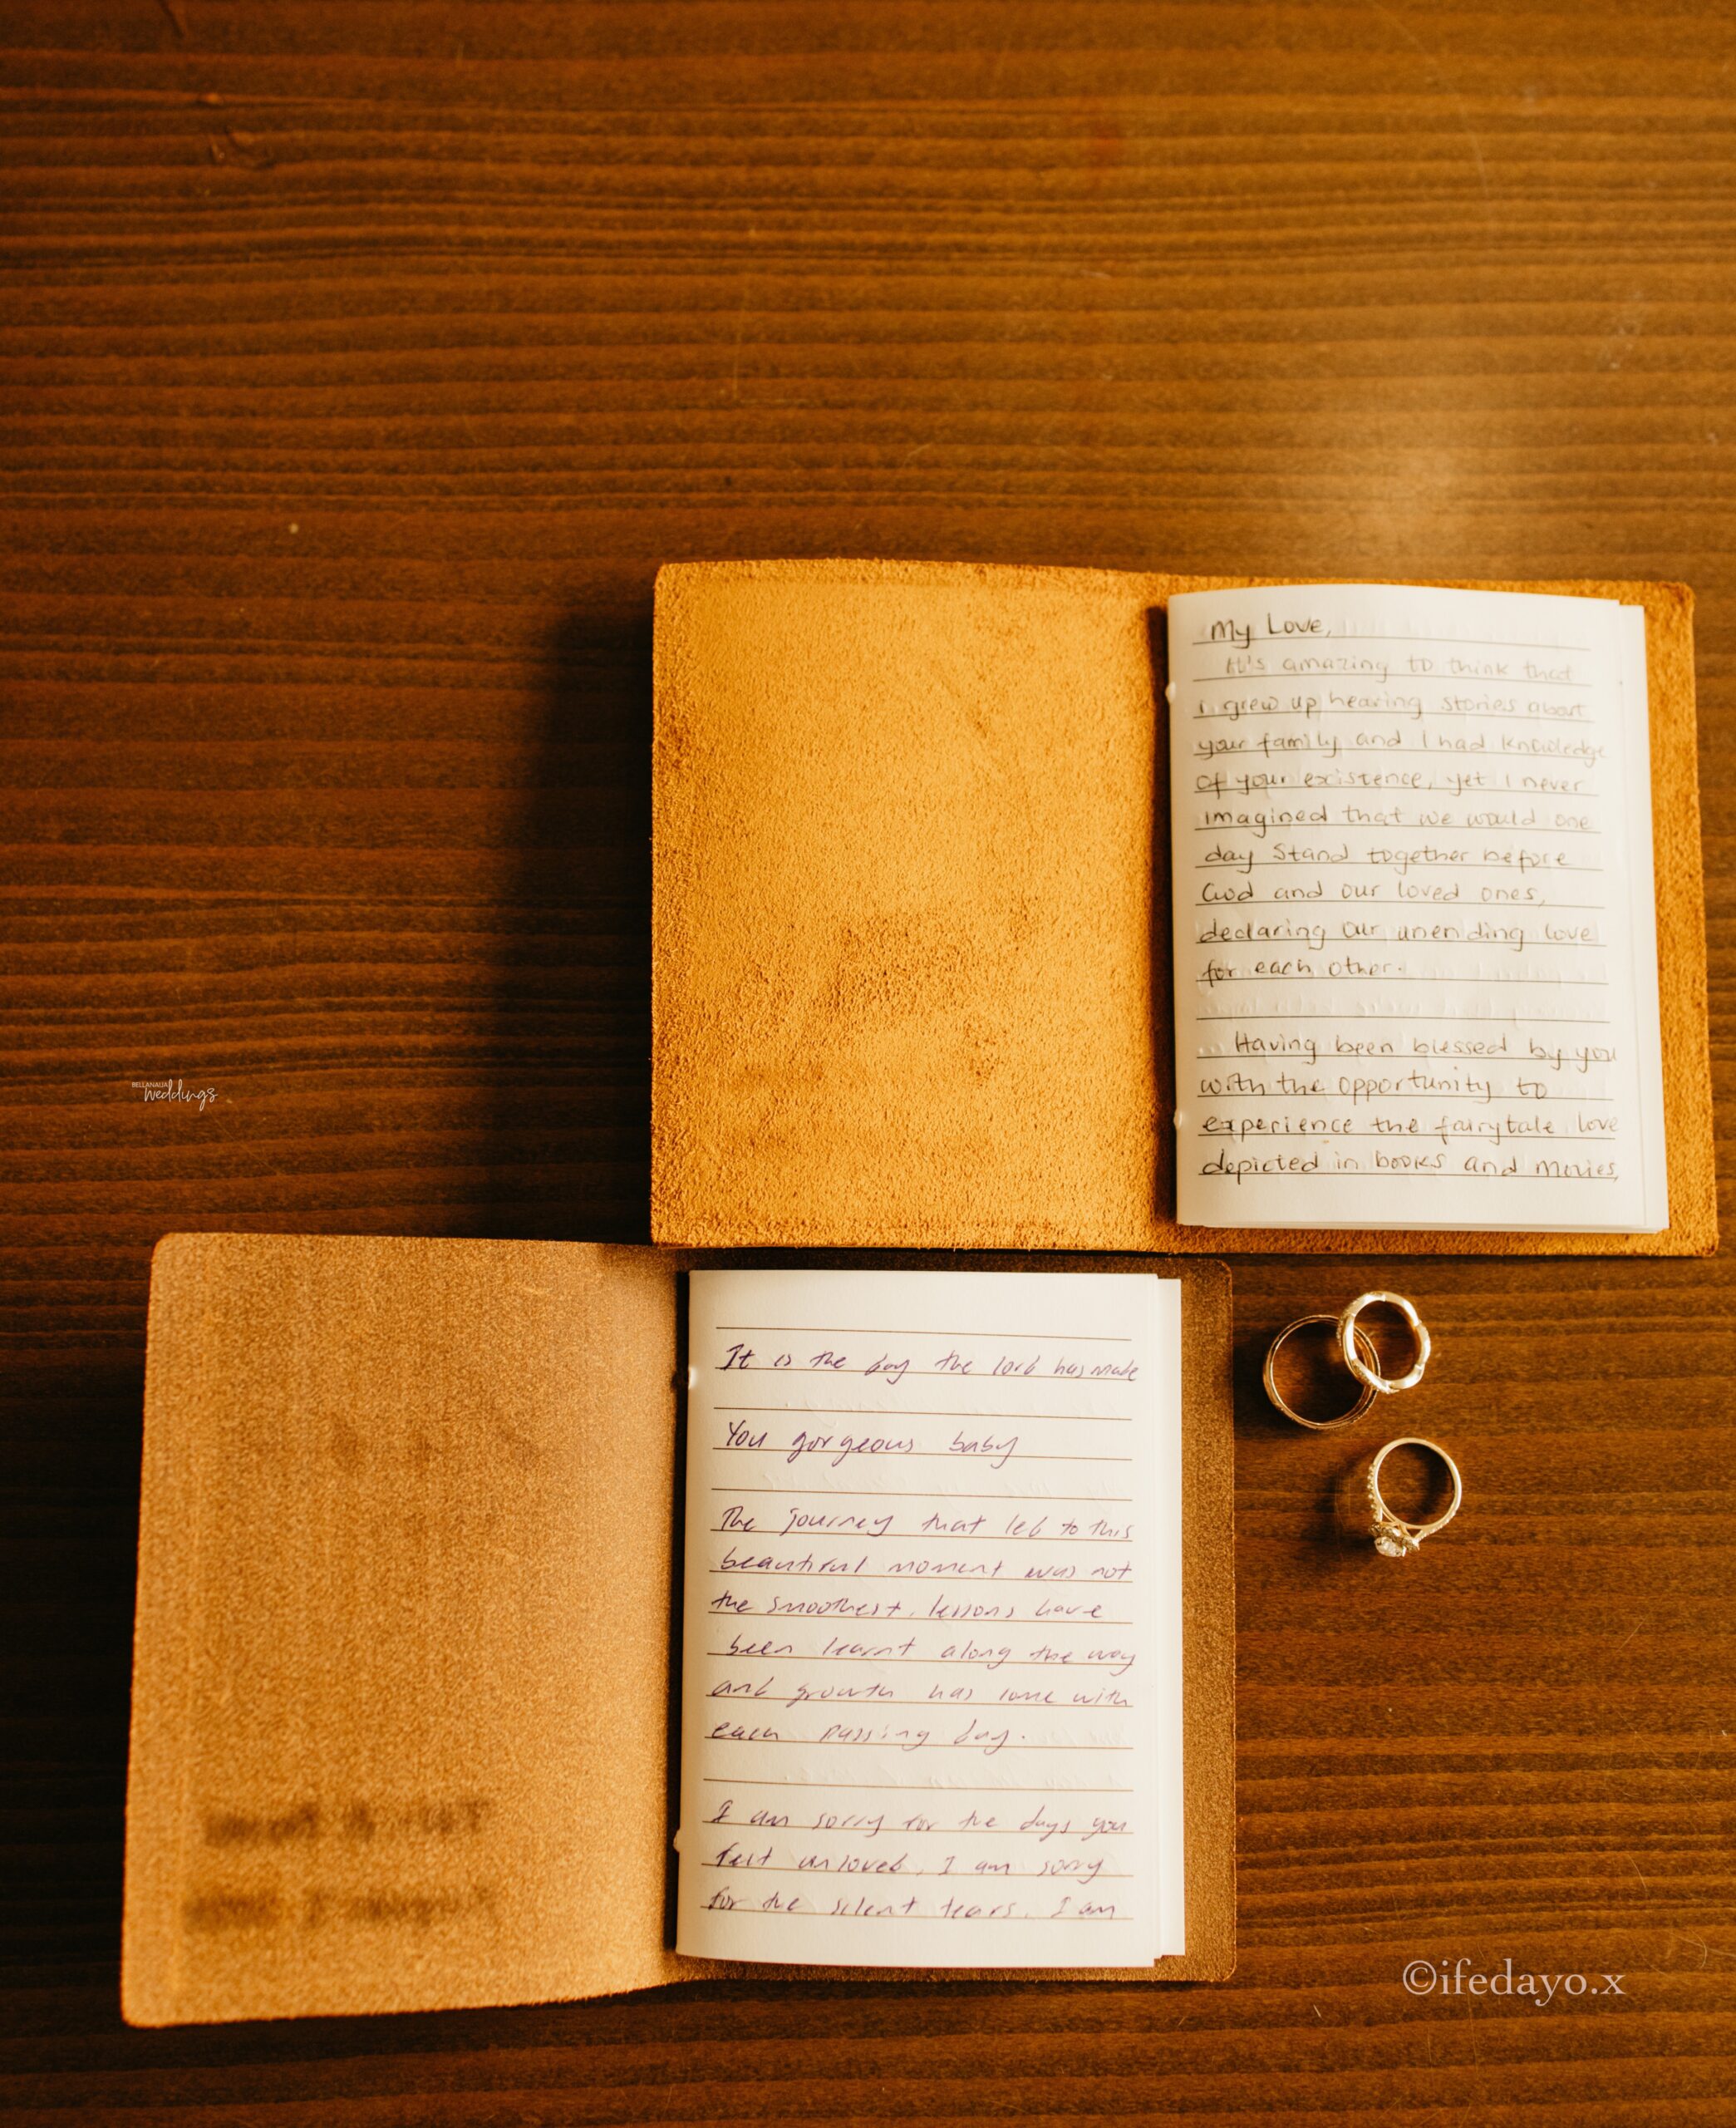 My Love,
It's amazing to think that
i grew up hearing stories about
your family and I had knowledge
of your existence, yet I never
imagined that we would one
day stand together before
God and our loved ones,
declaring our unending love
for each other.
Having been blessed by you
with the opportunity to
experience the fairytale love
depicted in books and movies,
BELLANAIJA
weddings
It is the day the lord has made
You gorgeous baby
The journey that led to this
beautiful moment was not
the smoothest, lessons have
been learnt along the way
and growth has come with
each passing day.
I am sorry for the days you
felt unloved, I am sorry
for the silent tears. I am
©ifedayo.x